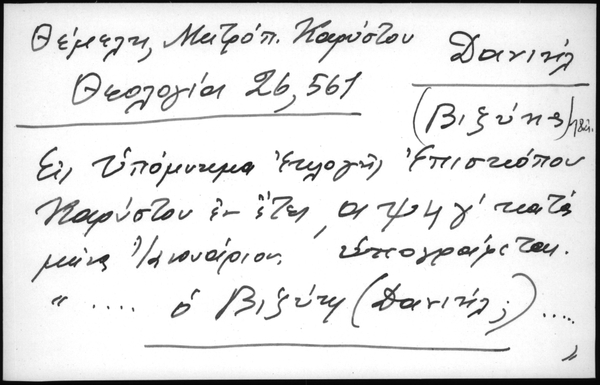 Θέμελη, Μητρόπ. Καρύστου
Δανιήλ
Θεολογία 26, 561
(Βιζύης)
Εἰς Ὑπόμνημα ἐκλογῆς Ἐπισκόπου
Καρύστου ἐν ἔτει, αψηγ΄ κατὰ
μῆνα Ἰανουάριον ὑπογράφεται.
“ .... ὁ Βιζύης (Δανιήλ;) .....